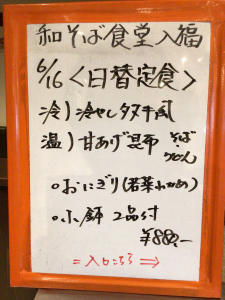 和そば食堂入福
6/16 <日替定食>
冷)冷やしタヌキ風
温)甘あげ昆布 そば うどん
○おにぎり(若菜わかめ)
○小鉢 2品付
¥880,-
=入口こちら⇒